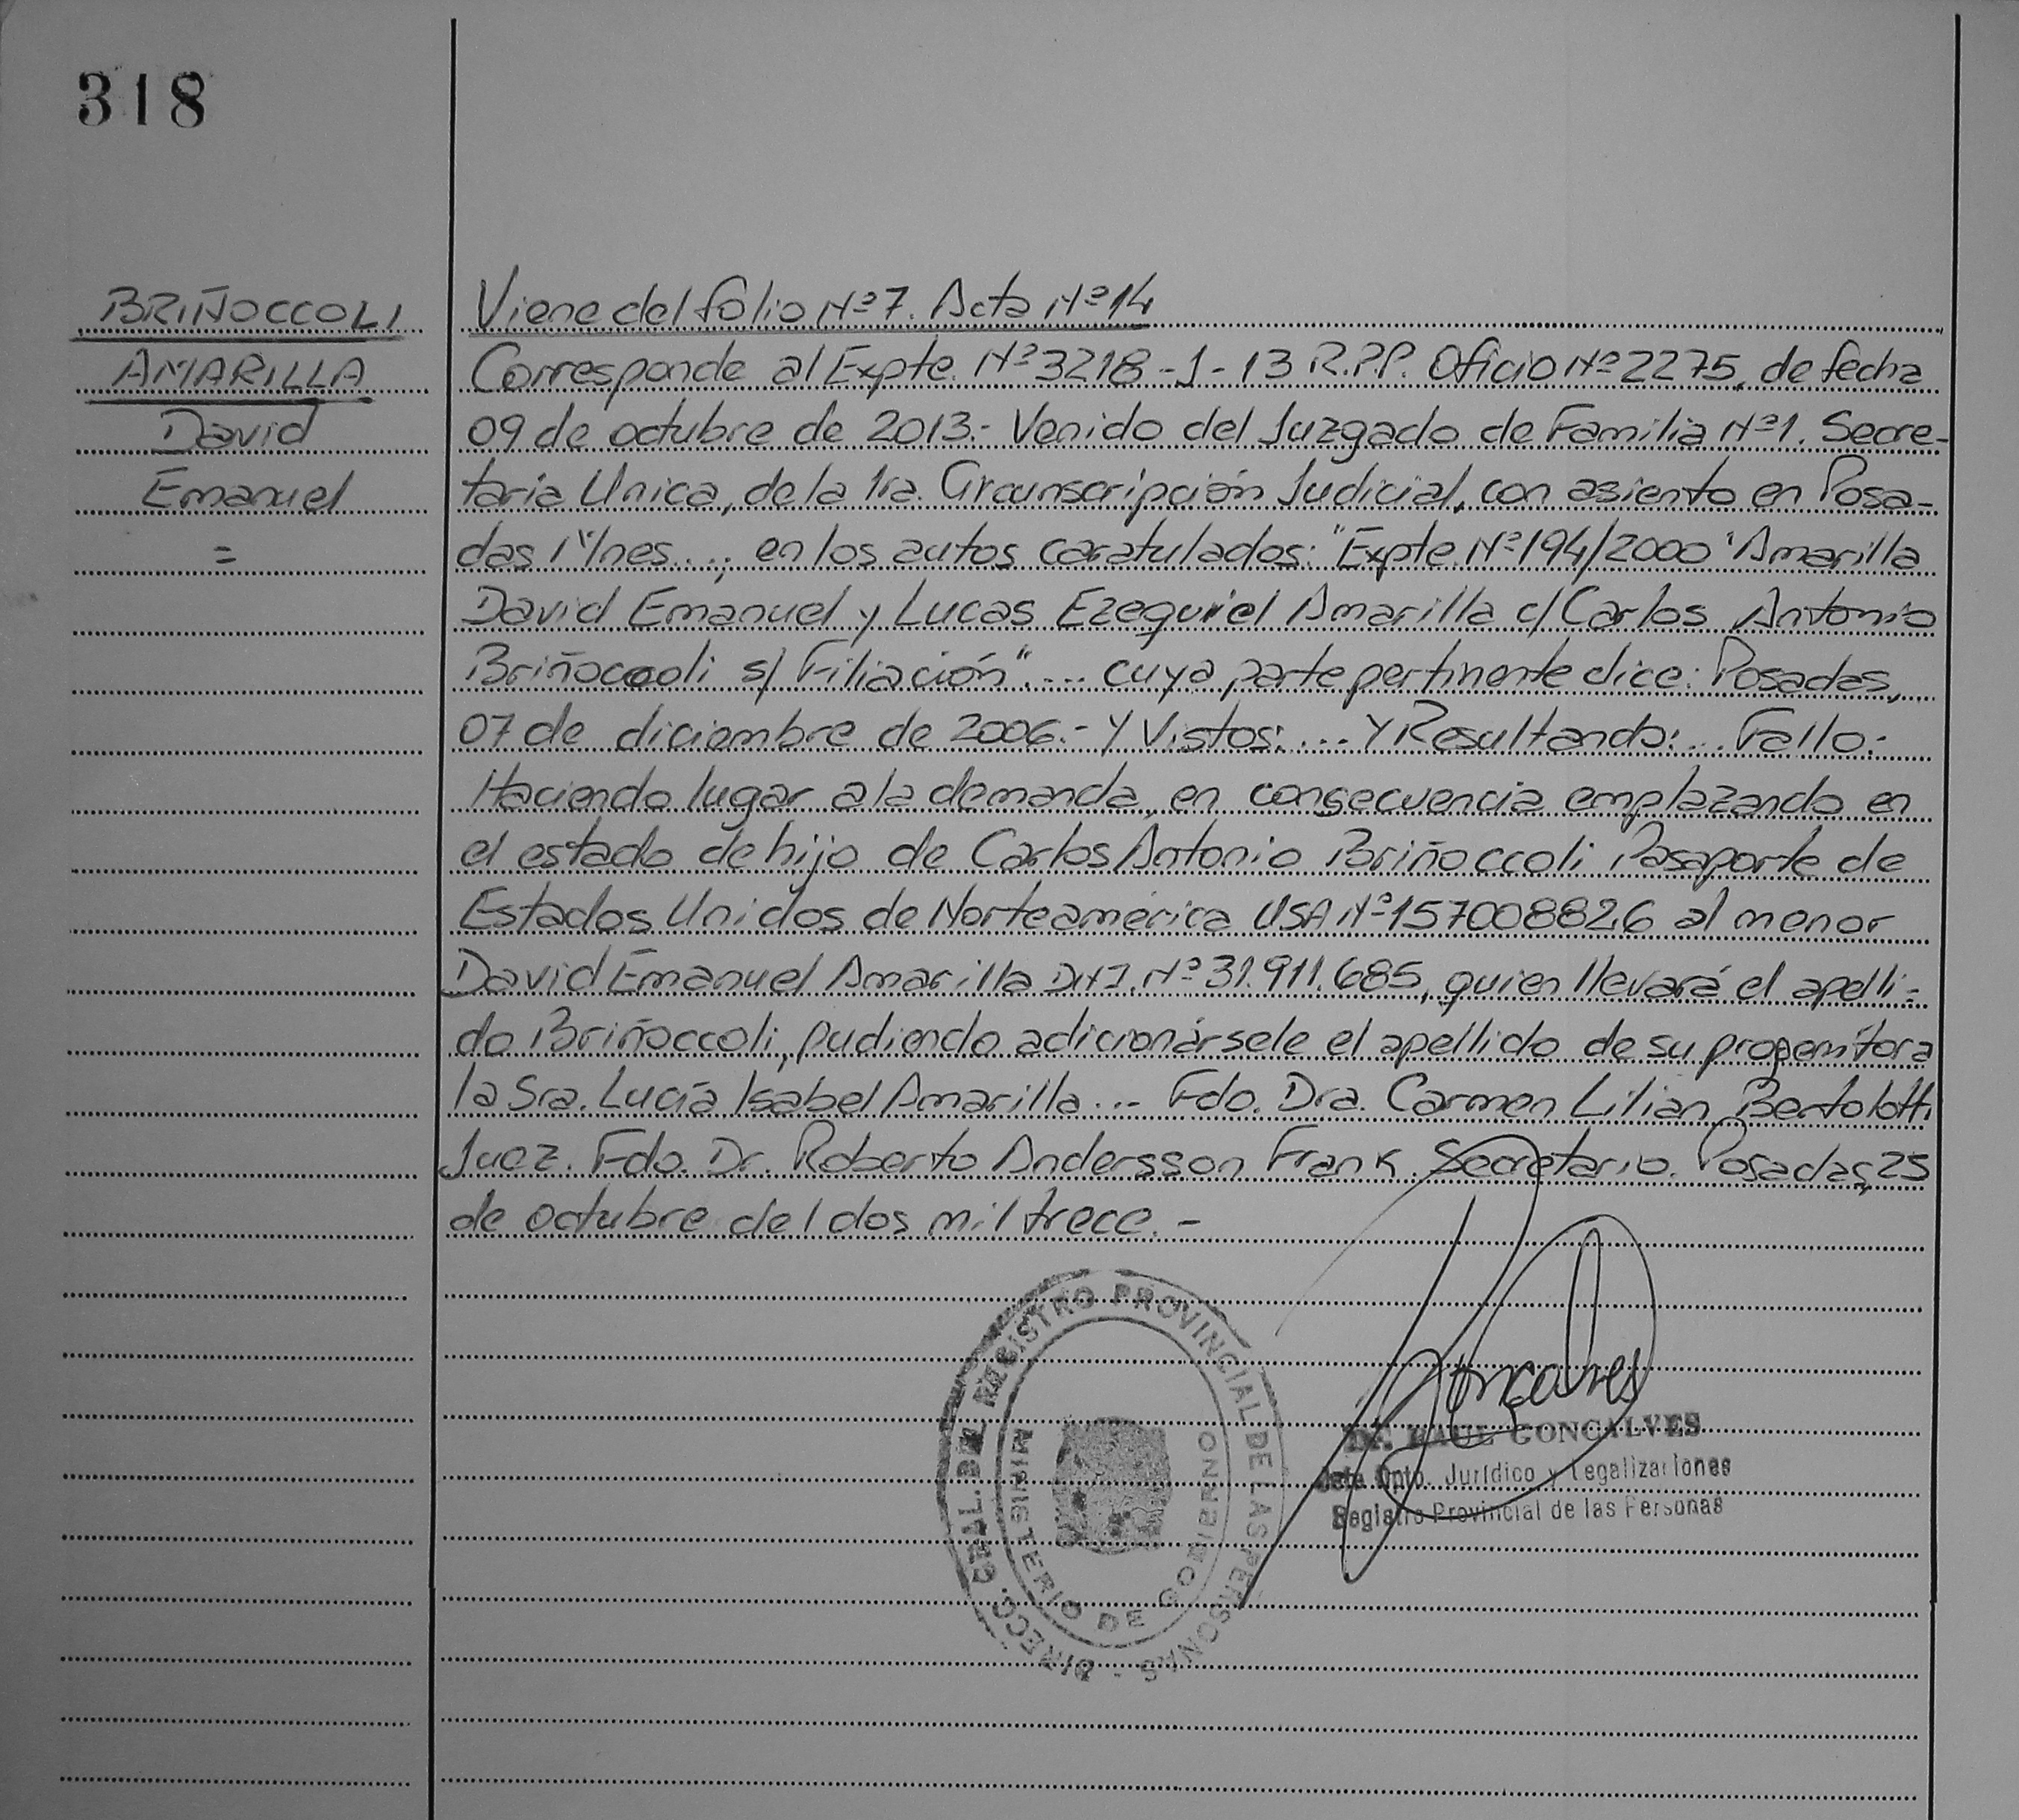 318
BRIÑOCCOLI
AMARILLA
David
Emanuel
=
Viene del folio Nº 7. Acta Nº 14
Corresponde al Expte. Nº 3218-J-13 R.P.P. Oficio Nº 2275, de fecha
09 de octubre de 2013.- Venido del Juzgado de Familia Nº 1. Secre-
taria Unica, de la 1ra. Circunscripción Judicial, con asiento en Posa-
das Mnes...; en los autos caratulados: "Expte. Nº 194/2000 "Amarilla
David Emanuel y Lucas Ezequiel Amarilla c/ Carlos Antonio
Briñoccoli s/ Filiación".... cuya parte pertinente dice: Posadas,
07 de diciembre de 2006.- Y Vistos:... Y Resultando:... Fallo:-
Haciendo lugar a la demanda, en consecuencia emplazando en
el estado de hijo de Carlos Antonio Briñoccoli Pasaporte de
Estados Unidos de Norteamerica USA Nº 157008826 al menor
David Emanuel Amarilla DNI. Nº 31.911.685, quien llevará el apelli-
do Briñoccoli, pudiendo adicionársele el apellido de su progenitora
la Sra. Lucía Isabel Amarilla... Fdo. Dra. Carmen Lilian Bertolotti
Juez. Fdo. Dr. Roberto Andersson Frank. Secretario. Posadas, 25
de octubre del dos mil trece.-
DIRECC. GRAL. DEL REGISTRO PROVINCIAL DE LAS PERSONAS -
MINISTERIO DE GOBIERNO
Goncalves
Dr. RAUL GONCALVES
Jefe Dpto. Jurídico y Legalizaciones
Registro Provincial de las Personas